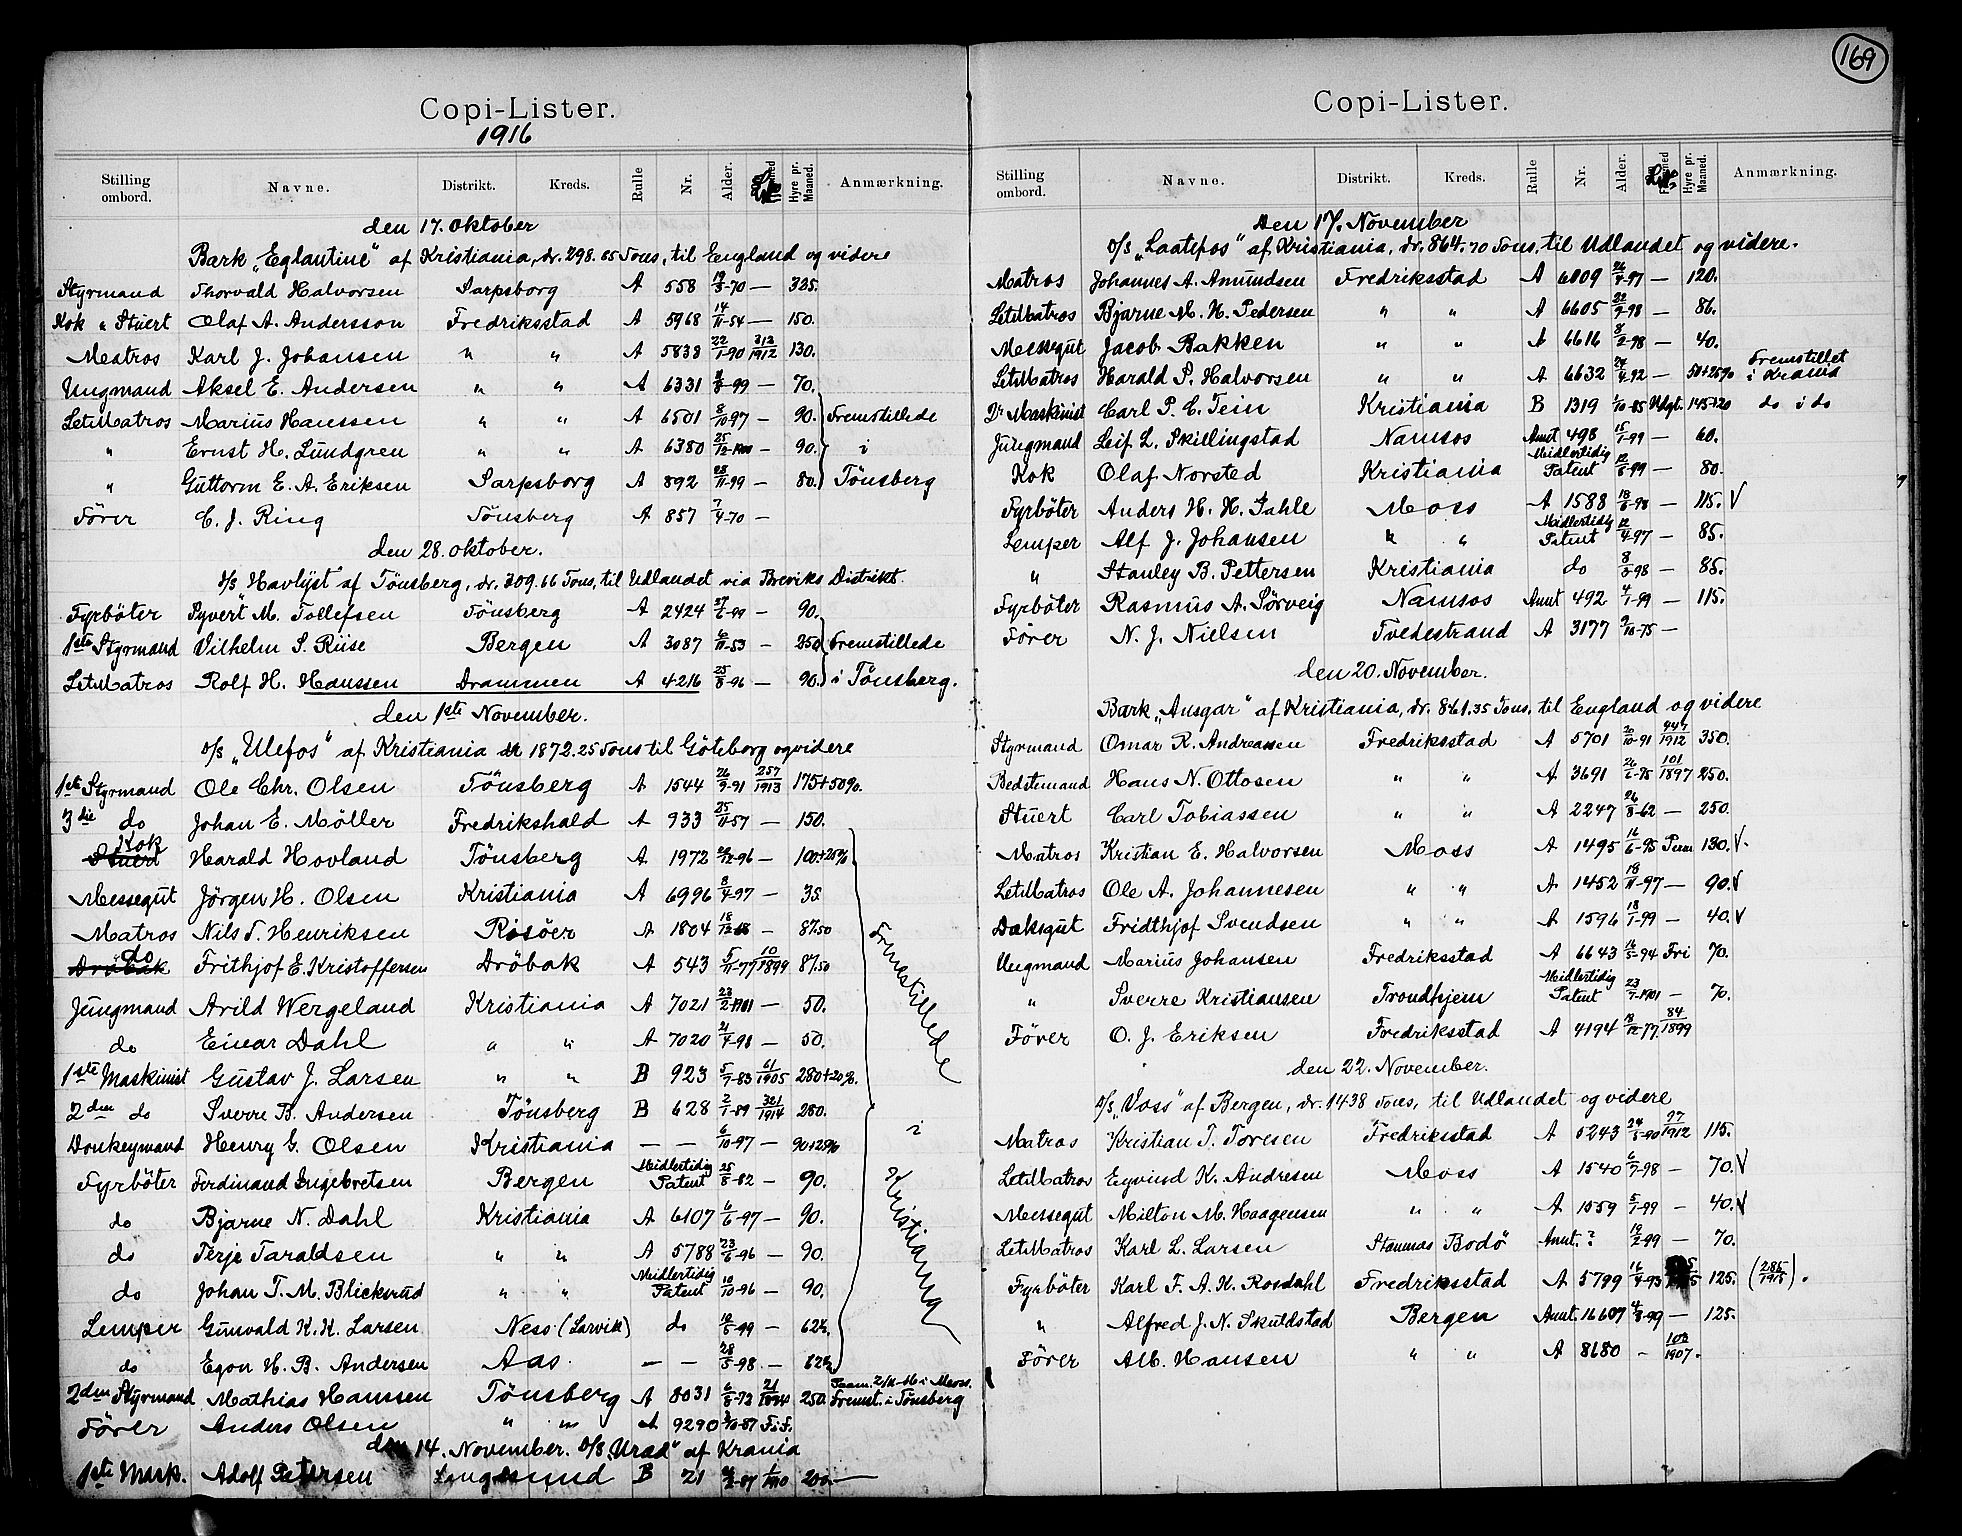 169
Copi-Lister.
1916
Stilling ombord. Navne. Distrikt. Kreds. Rulle Nr. Alder. Hyre pr. Maaned. Anmærkning.
den 17. Oktober
Bark „Eglantine" af Kristiania, dr. 298.85 Tons, til England og videre
Styrmand Thorvald Halvorsen Sarpsborg A 558 19/8-70 — 325.
Kok & Stuert Olaf A. Andersson Fredriksstad A 5968 14/11-54 — 150.
Matros Karl J. Johansen " " A 5838 22/1-90 313/1912 130.
Ungmand Aksel E. Andersen " " A 6331 /8-99 — 70.
LetMatros Marius Hanssen " " A 6501 8/10-97 — 90. Fremstillede
" Ernst H. Lundgren " " A 6380 25/12-1900 — 90. i
" Guttorm E. A. Eriksen Sarpsborg A 892 25/11-99 — 80. Tönsberg
Förer C. J. Ring Tönsberg A 857 7/4-70 —
den 28. Oktober.
D/S „Havlyst af Tönsberg, dr. 309.66 Tons, til Udlandet via Breviks Distrikt.
Fyrböter Syvert M. Tollefsen Tönsberg A 2424 27/6-99 — 90.
1ste Styrmand Vilhelm S. Riise Bergen A 3087 6/11-53 — 250 Fremstillede
LetMatros Rolf H. Hanssen Drammen A 4216 25/8-96 — 90. i Tönsberg.
den 1ste November.
D/S „Ulefos" af Kristiania dr 1872.25 Tons til Göteborg og videre
1ste Styrmand Ole Chr. Olsen Tönsberg A 1544 26/9-91 257/1913 175+50%.
3die do Johan E. Möller Fredrikshald A 933 25/11-57 — 150.
Kok Harald Hovland Tönsberg A 1972 /12-96 — 100+25%
Messegut Jörgen H. Olsen Kristiania A 6996 8/4-97 — 35
Matros Nils T. Henriksen Risöer A 1804 18/12-88 — 87.50
do Frithjof E. Kristoffersen Dröbak A 543 5/11-77 10/1899 87.50
Jungmand Arild Wergeland Kristiania A 7021 23/2-1901 — 50.
do Einar Dahl " " A 7020 21/4-98 — 50.
1ste Maskinist Gustav J. Larsen " " B 923 5/7-83 61/1905 280+20%.
2den do Sverre B. Andersen Tönsberg B 628 2/1-89 321/1914 280.
Donkeymand Henry G. Olsen Kristiania — — 6/10-97 — 90+25%
Fyrböter Ferdinand Ingebretsen Bergen Midlertidig Patent 25/8-82 — 90.
do Bjarne N. Dahl Kristiania A 6107 6/6-97 — 90.
do Terje Taraldsen " " A 5788 23/6-96 — 90.
do Johan T. M. Blicksrud " " Midlertidig Patent 10/10-96 — 90.
Lemper Gunvald K. K. Larsen Ness (Larvik) do 10/5-99 — 62½.
do Egon H. B. Andersen Aas — — 28/5-98 — 62½
Fremstillede i Kristiania
2den Styrmand Mathias Hanssen Tönsberg A 8031 6/8-73 21/ 250. Fremst. i Tönsberg
Förer Anders Olsen " " A 9290 /10-87
den 14. November. D/S „Urad" af Krania
1ste Mask. Adolf Petersen Langesund B 21 /2-87 200.—
Copi-Lister.
Stilling ombord. Navne. Distrikt. Kreds. Rulle Nr. Alder. Hyre pr. Maaned. Anmærkning.
Den 17. November
D/S „Laatefos" af Kristiania, dr. 864.70 Tons, til Udlandet og videre.
Matros Johannes A. Amundsen Fredriksstad A 6009 26/4-97 — 120.
LetMatros Bjarne M. H. Pedersen " " A 6605 22/9-98 — 86.
Messegut Jacob Bakken " " A 6616 8/2-98 — 40.
LetMatros Harald P. Halvorsen " " A 6632 24/4-92 — 50+25% Fremstillet i Krania
2n Maskinist Carl P. C. Tein Kristiania B 1319 1/10-85 Udgt. 145+20 do i do
Jungmand Leif L. Skillingstad Namsos Annt 498 15/1-99 — 60.
Kok Olaf Norsted Kristiania Midlertidig Patent 12/8-99 — 80.
Fyrböter Anders H. H. Jahle Moss A 1588 18/6-98 — 115. V
Lemper Alf J. Johansen " " Midlertidig Patent 12/4-97 — 85.
" Stanley B. Pettersen Kristiania do 8/8-98 — 85.
Fyrböter Rasmus A. Sörveig Namsos Annt 492 /1-89 — 115.
Förer N. J. Nielsen Tvedestrand A 3177 9/10-75 —
den 20. November.
Bark „Ansgar" af Kristiania, dr. 861.35 Tons, til England og videre
Styrmand Omar R. Andreassen Fredriksstad A 5701 20/10-91 447/1912 350.
Bedstemand Hans N. Ottosen " " A 3691 26/6-75 101/1897 250.
Stuert Carl Tobiassen " " A 2247 26/8-62 — 250.
Matros Kristian E. Halvorsen Moss A 1495 16/6-95 Perm 130. V.
LetMatros Ole A. Johannesen " " A 1452 18/11-97 — 90. V
Daksgut Fridthjof Svendsen " " A 1596 18/1-99 — 40. V
Ungmand Marius Johansen Fredriksstad A 6643 16/5-94 Fri 70.
" Sverre Kristiansen Trondhjem Midlertidig Patent 23/7-1901 — 70.
Förer O. J. Eriksen Fredriksstad A 4194 18/12-77 84/1899
den 22. November.
D/S „Voss" af Bergen, dr. 1438 Tons, til Udlandet og videre
Matros Kristian T. Toresen Fredriksstad A 5243 24/5-90 77/1912 115.
LetMatros Eyvind K. Andresen Moss A 1540 6/7-98 — 70. V
Messegut Milton M. Haagensen " " A 1559 5/1-99 — 40. V
LetMatros Karl L. Larsen Stamnas Bodö Annt. ? 19/2-99 — 70.
Fyrböter Karl F. A. K. Rosdahl Fredriksstad A 5799 16/4-93 125. (286/1915).
" Alfred J. N. Skuldstad Bergen Annt. 16607 /8-99 — 125.
Förer Alb. Hansen " " A 8680 - 102/1907.